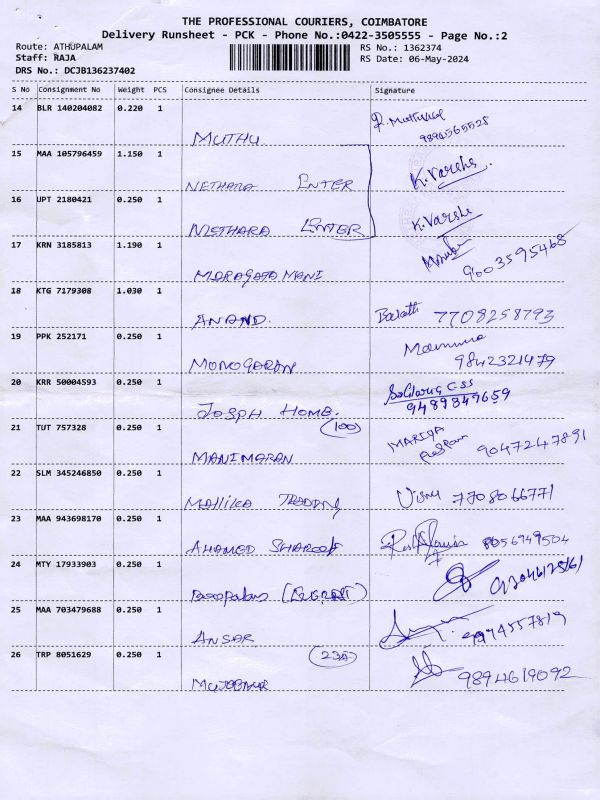 THE PROFESSIONAL COURIERS, COIMBATORE
Delivery Runsheet - PCK - Phone No.:0422-3505555 - Page No.:2
Route: ATHUPALAM
RS No.: 1362374
Staff: RAJA
RS Date: 06-May-2024
DRS No.: DCJB136237402
S No Consignment No Weight PCS Consignee Details Signature
14 BLR 140204082 0.220 1
MUTHU
9894565528
15 MAA 105796459 1.150 1
NETHARA ENTER K. Varsha
16 UPT 2180421 0.250 1
NETHARA ENTER K. Varsha
17 KRN 3185813 1.190 1
MARAGATA MANI 9003595468
18 KTG 7179308 1.030 1
ANAND. 7708258793
19 PPK 252171 0.250 1
MONOGARAN 9842321479
20 KRR 50004593 0.250 1
JOSPH HOME. 9489349659
21 TUT 757328 0.250 1 (100)
MANIMARAN 9047247891
22 SLM 345246850 0.250 1
MALLIKA TRADING 7708066771
23 MAA 943698170 0.250 1
AHAMED SHAROOK 8056949504
24 MTY 17933903 0.250 1
25 MAA 703479688 0.250 1
ANSAR 9994557819
26 TRP 8051629 0.250 1
9894619092